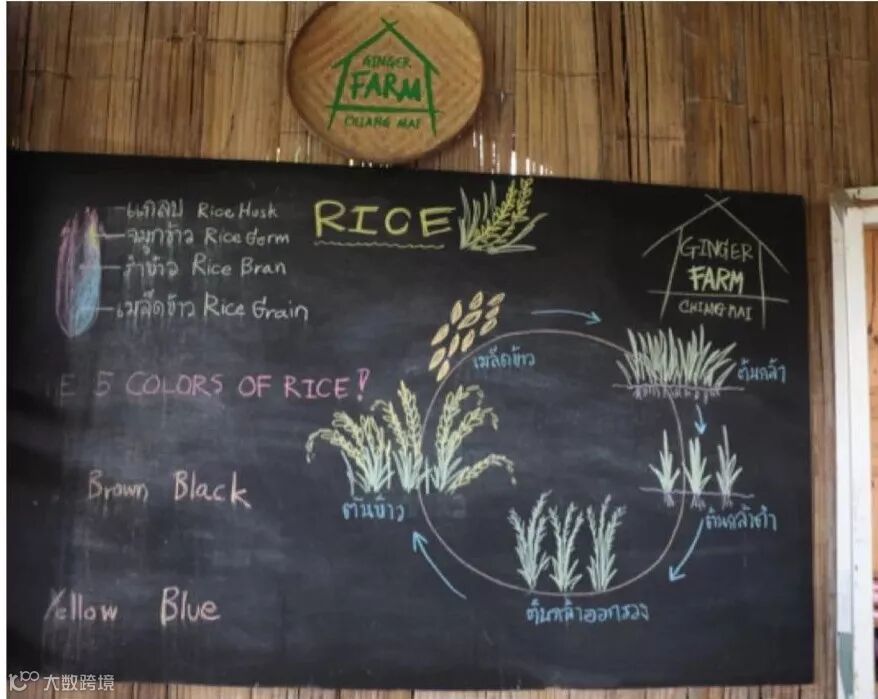 GINGER
FARM
CHIANG MAI
แกลบ Rice Husk
จมูกข้าว Rice Germ
รำข้าว Rice Bran
เมล็ดข้าว Rice Grain
RICE
GINGER
FARM
CHIANG MAI
เมล็ดข้าว
ต้นกล้า
E 5 COLORS OF RICE!
Brown Black
ต้นข้าว
ต้นกล้าดำ
Yellow Blue
ต้นกล้าออกรวง
大数跨境